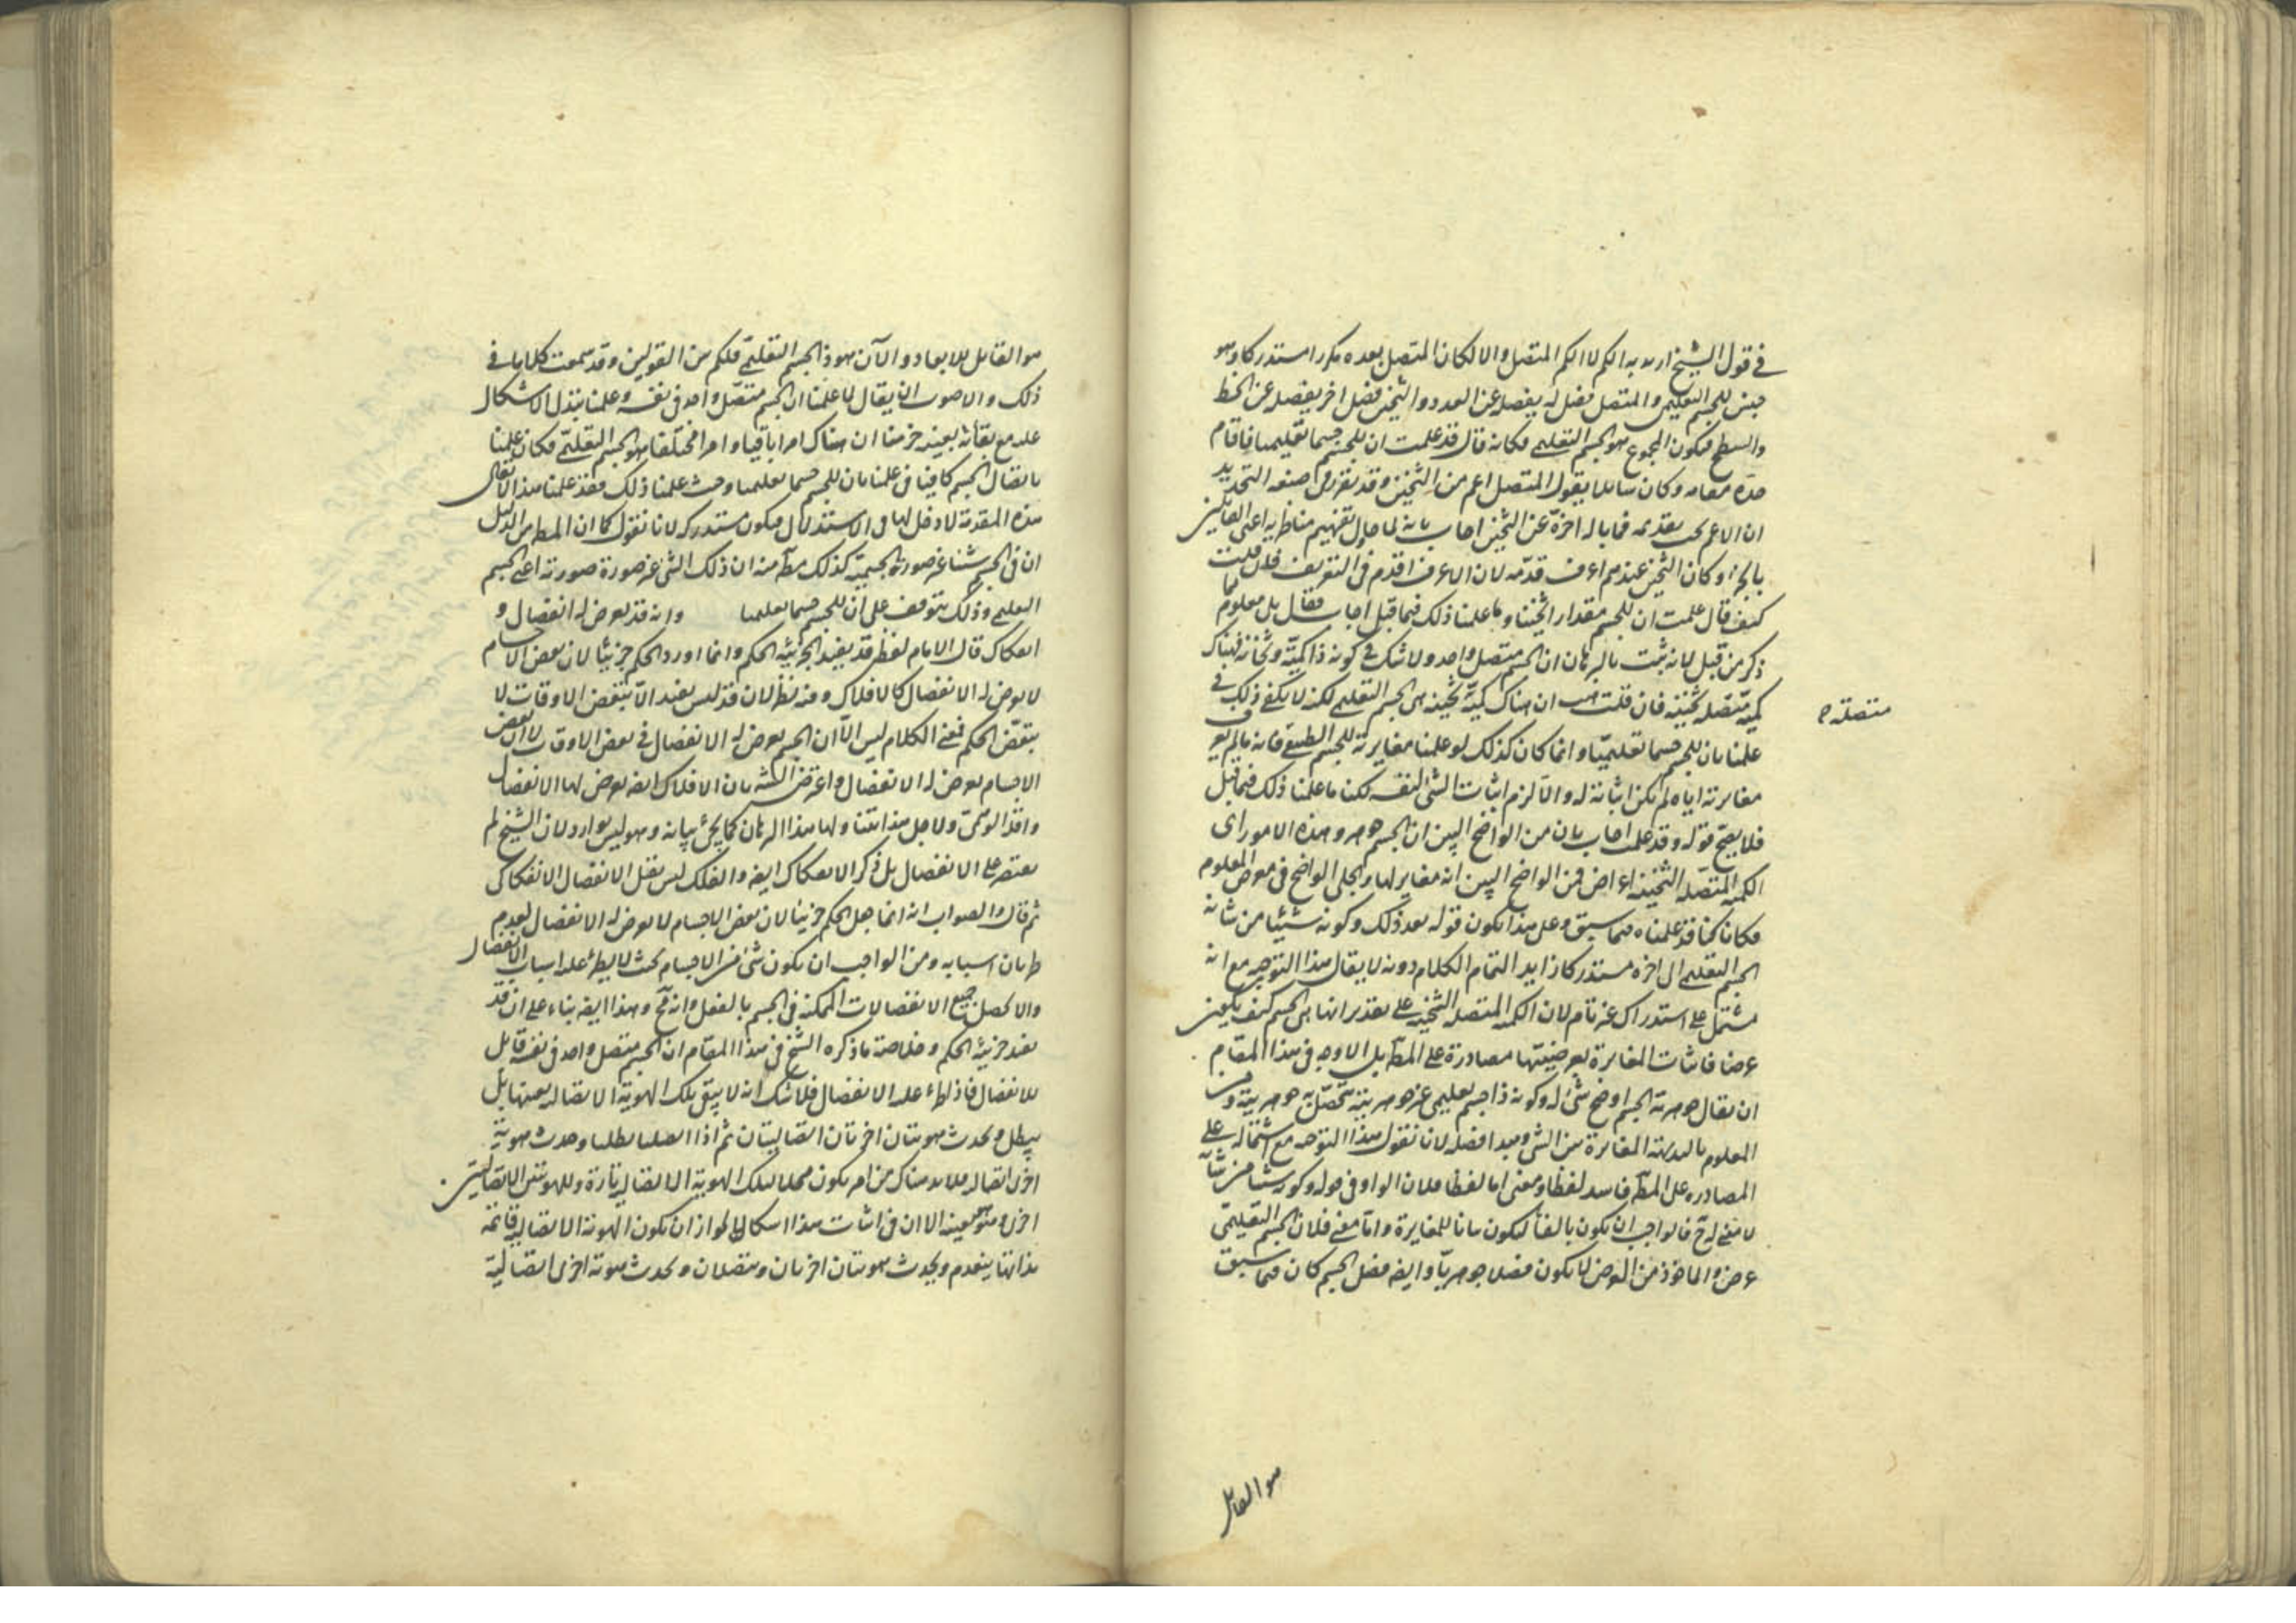 في قول الشيخ اريد به الكم لا الكم المتصل والا لكان المتصل بعده مكررا مستدركا وهو
جنس للجسم التعليمى والمتصل فصل له يفصله عن العدد والثخين فصل اخر يفصله عن الخط
والسطح فيكون المجموع هو الجسم التعليمى فكانه قال قد علمت ان للجسم جسما تعليميا فاقام
حده مقامه وكان سائلا يقول المتصل اعم من الثخين وقد تقرر فى صنعة التحديد
ان الاعم يجب تقديمه فما باله اخره عن الثخين اجاب بانه لما حاول تفهيم مناظريه اعنى القائلين
بالجزء وكان الثخين عندهم اعرف قدمه لان الاعرف اقدم فى التعريف فان قلت
كيف قال علمت ان للجسم مقدارا ثخينا وما علمنا ذلك فيما قبل اجاب فقال بل معلوم مما
ذكر من قبل لانه ثبت بالبرهان ان الجسم متصل واحد ولا شك فى كونه ذا كمية وثخانة فهناك
كمية متصلة ثخينة فان قلت هب ان هناك كمية ثخينة هى الجسم التعليمى لكنه لا يكفى ذلك فى
متصلة
علمنا بان للجسم جسما تعليميا وانما كان كذلك لو علمنا مغايرته للجسم الطبيعى فانه ما لم يعرف
مغايرته اياه لم يكن اثباته له والا لزم اثبات الشئ لنفسه لكنا ما علمنا ذلك فيما قبل
فلا يصح قوله وقد علمت اجاب بان من الواضح البين ان الجسم جوهر وهذه الامور اى
الكمية المتصلة الثخينة اعراض فمن الواضح البين انه مغاير لها والجلى الواضح فى معرض المعلوم
فكانا كنا قد علمناه فيما سبق وعلى هذا يكون قوله بعد ذلك وكونه شيئا من شانه
الجسم التعليمى الى اخره مستدركا زايد التمام الكلام دونه لا يقال هذا التوجيه مع انه
مشتمل على استدراك غير تام لان الكمية المتصلة الثخينة على تقدير انها هى الجسم كيف يكون
عرضا فاثبات المغايرة بعرضيتها مصادرة على المط بل الاوجه فى هذا المقام
ان يقال جوهرية الجسم اوضح شئ له وكونه ذا جسم تعليمى غير جوهريته تتحصل به جوهريته ومن
المعلوم بالبديهة المغايرة بين الشئ ومبدا فصله لانا نقول هذا التوجيه مع اشتماله على
المصادرة على المط فاسد لفظا ومعنى اما لفظا فلان الواو فى قوله وكونه شيئا من شانه
لا معنى له ح فالواجب ان يكون بالفا ليكون بيانا للمغايرة واما معنى فلان الجسم التعليمى
عرض والماخوذ من العرض لا يكون فصلا جوهريا وايضه فصل الجسم كان فيما سبق
هو القائل
هو القابل للابعاد والآن هو ذا الجسم التعليمى فلكم من القولين وقد سمعت كلاما فى
ذلك والاصوب ان يقال لما علمنا ان الجسم متصل واحد فى نفسه وعلمنا تبدل الاشكال
عليه مع بقائه بعينه جزمنا ان هناك امرا باقيا وامرا مختلفا هو الجسم التعليمى فكان علمنا
باتصال الجسم كافيا فى علمنا بان للجسم جسما تعليميا وحيث علمنا ذلك فقد علمنا هذا لا يقال
هذه المقدمة لا دخل لها فى الاستدلال فيكون مستدركة لانا نقول كما ان المط من الدليل
ان فى الجسم شيئا غير صورته الجسمية كذلك مط منه ان ذلك الشئ غير صورة صورته اعنى الجسم
التعليمى وذلك يتوقف على ان للجسم جسما تعليميا وانه قد يعرض له انفصال و
انفكاك قال الامام لفظة قد يفيد الجزئية الحكم وانما اورد الحكم جزئيا لان بعض الاجسام
لا يعرض له الانفصال كالافلاك وفيه نظر لان قد ليس يفيد الا بتبعض الاوقات لا
بتبعض الحكم فمعنى الكلام ليس الا ان الجسم يعرض له الانفصال فى بعض الاوقات لا ان بعض
الاجسام يعرض له الانفصال واعترض الشه بان الافلاك ايضه يعرض لها الانفصال
واقله الوهمى ولاجل هذا يتناولها هذا البرهان كما يجئ بيانه وهو ليس بوارد لان الشيخ لم
يقتصر على الانفصال بل ذكر الانفكاك ايضه والفلك ليس يقبل الانفصال الانفكاكى
ثم قال والصواب انه انما جعل الحكم جزئيا لان بعض الاجسام لا يعرض له الانفصال لعدم
طريان اسبابه ومن الواجب ان يكون شئ من الاجسام بحيث لا يطرئ عليه اسباب الانفصال
والا لحصل جميع الانفصالات الممكنة فى الجسم بالفعل وانه مح وهذا ايضه بناء على ان قد
يفيد جزئية الحكم وخلاصة ما ذكره الشيخ فى هذا المقام ان الجسم متصل واحد فى نفسه قابل
للانفصال فاذا طرء عليه الانفصال فلا شك انه لا يبقى تلك الهوية الاتصالية بعينها بل
يبطل ويحدث هويتان اخريان اتصاليتان ثم اذا اتصلتا بطلتا وحدث هوية
اخرى اتصالية فلا بد هناك من امر يكون محلا لتلك الهوية الاتصالية تارة وللهويتين الاتصاليتين
اخرى وهو هو بعينه الا ان فى اثبات هذا اشكالا لجواز ان يكون الهوية الاتصالية قائمة
بذاتها ينعدم ويحدث هويتان اخريان ومتصلان ويحدث هوية اخرى اتصالية